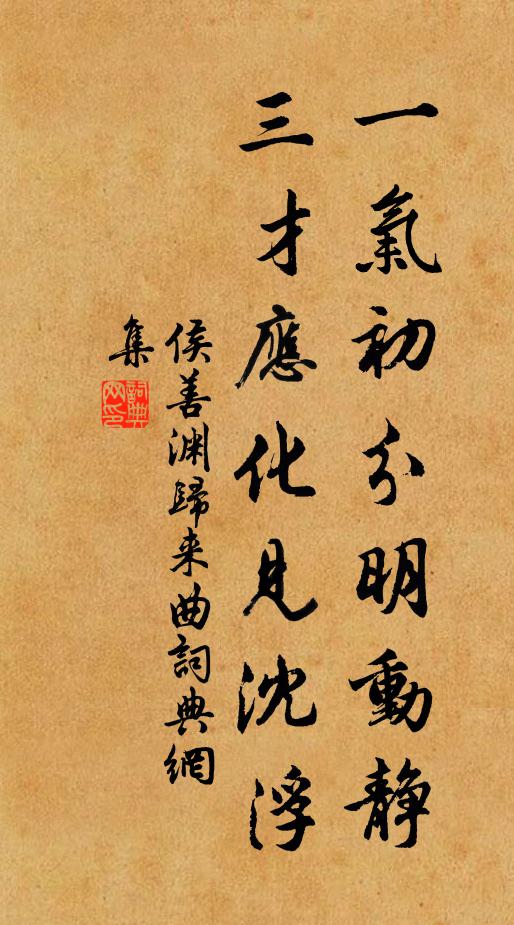 一氣初分明動靜
三才應化見沈浮
侯善渊歸来曲詞典網
集
詞典網印